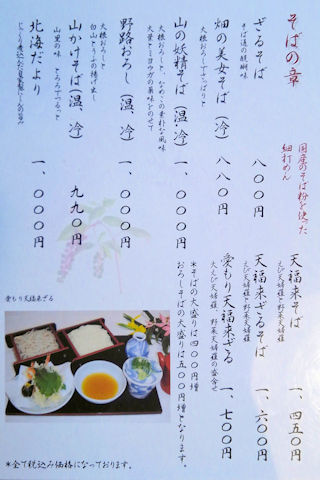 そばの章
国産のそば粉を使った
細打めん
ざるそば 八〇〇円
そば通の醍醐味
畑の美女そば（冷） 八八〇円
大根おろしでさっぱりと
山の妖精そば（温・冷） 一、〇〇〇円
大根おろし、なめこの素朴な風味
大葉とミョウガの薬味をのせて
野路おろし（温、冷） 一、〇〇〇円
大根おろしと
白山とうふの揚げ出し
山かけそば（温、冷） 九九〇円
山里の味 とろろでつるっと
北海だより 一、〇〇〇円
天福来そば 一、四五〇円
えび天婦羅と野菜天婦羅
天福来ざるそば 一、六〇〇円
えび天婦羅と野菜天婦羅
愛もり天福来ざる 一、七〇〇円
大えび天婦羅 野菜天婦羅の盛合せ
＊そばの大盛りは四〇〇円増
おろしそばの大盛りは五〇〇円増となります。
愛もり天福来ざる
＊全て税込み価格になっております。